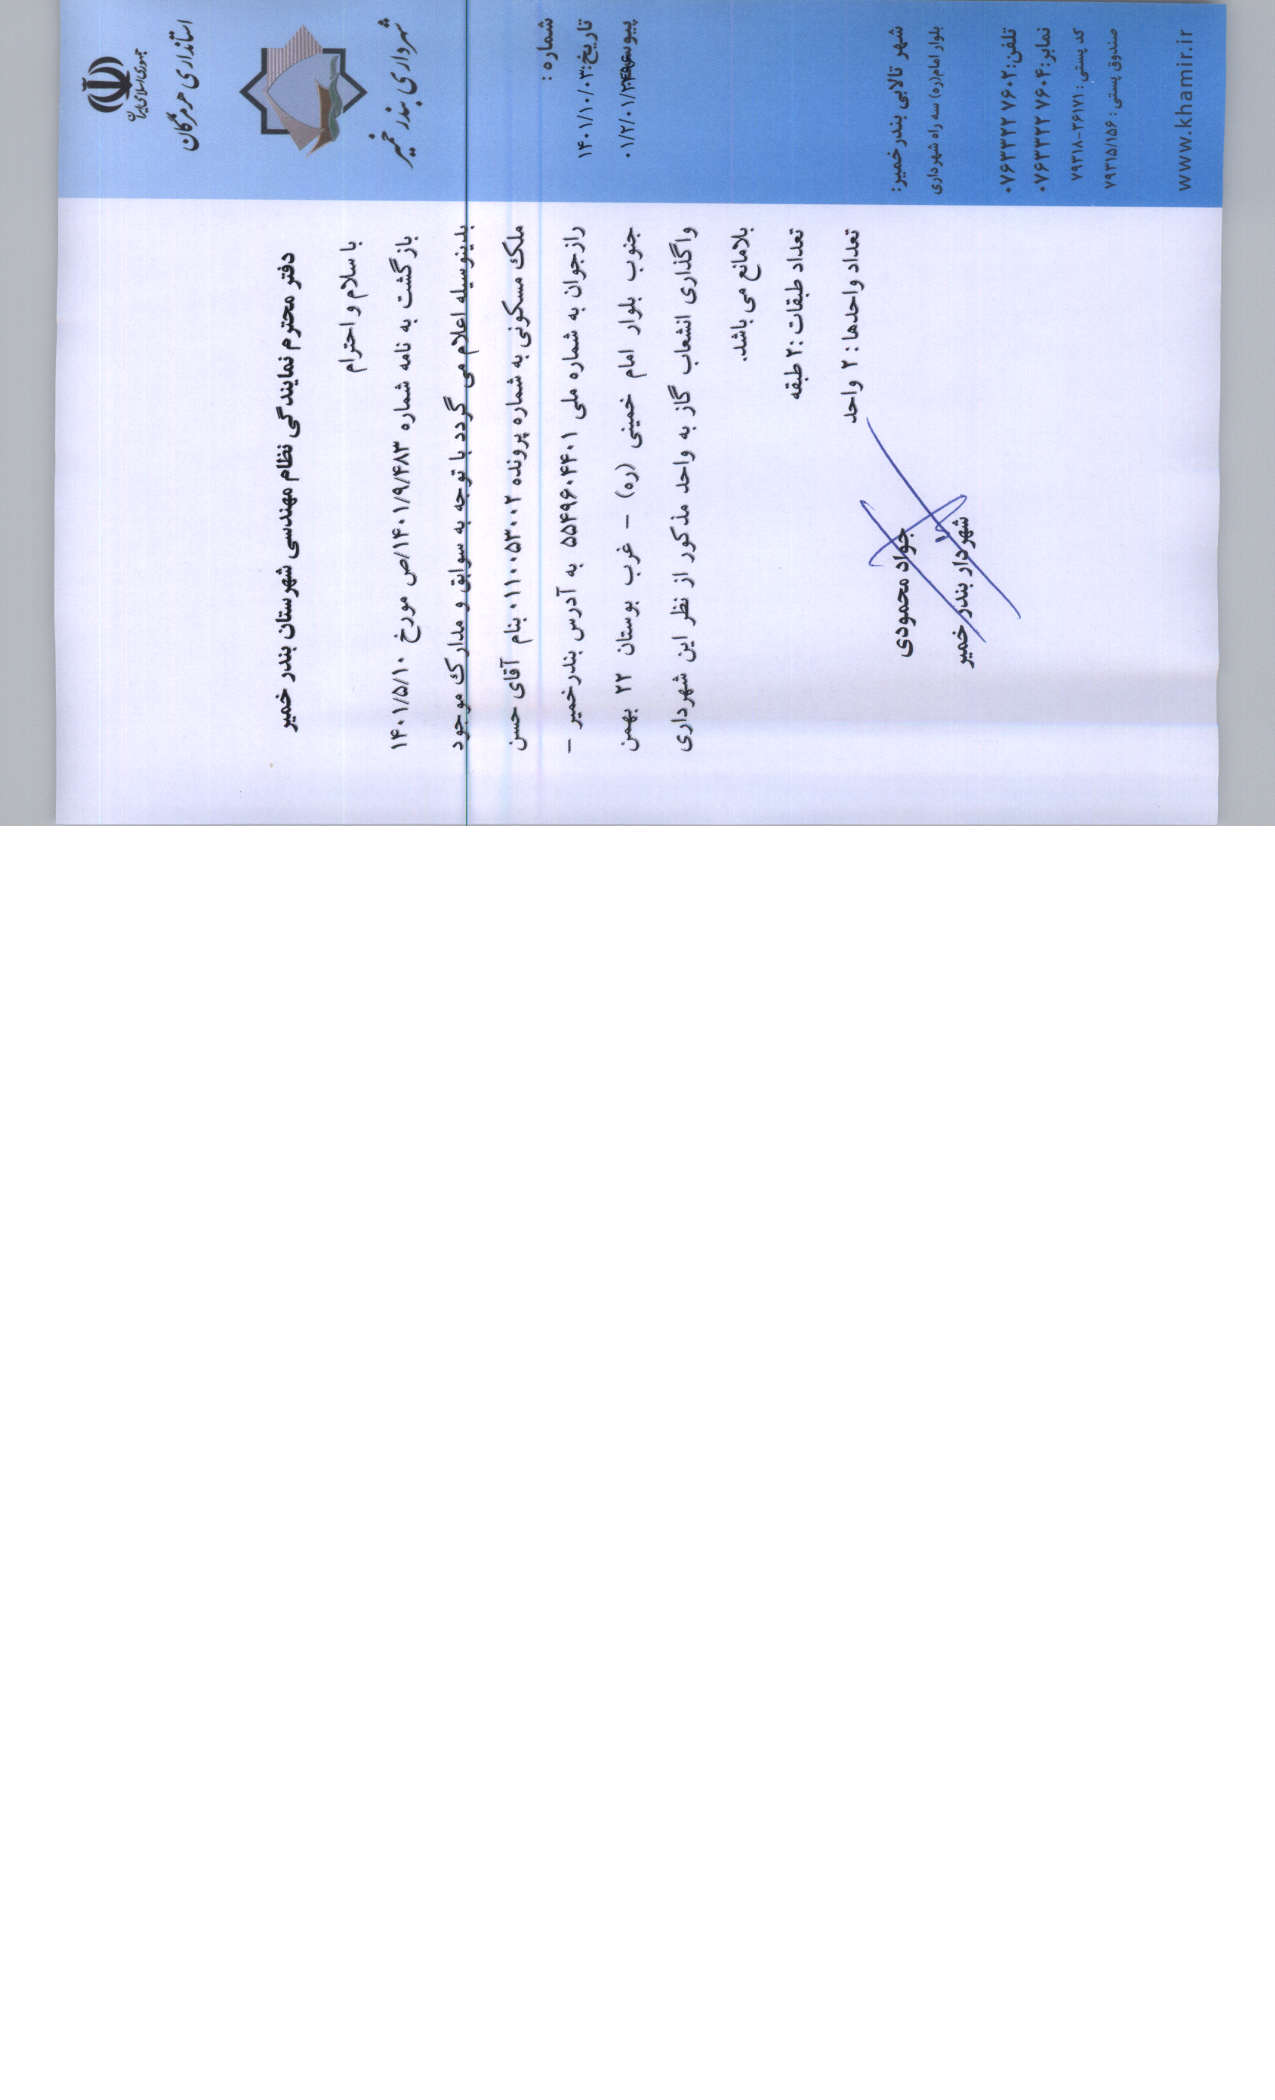 جمهوری اسلامی ایران
استانداری هرمزگان
شهرداری بندر خمیر
شماره :
تاریخ: ۱۴۰۱/۱۰/۰۳
پیوست
شهر تالابی بندر خمیر:
بلوار امام(ره) سه راه شهرداری
تلفن: ۰۷۶۳۳۲۲ ۷۶۰۲
نمابر: ۰۷۶۳۳۲۲ ۷۶۰۴
کد پستی: ۷۹۳۱۸-۲۶۱۷۱
صندوق پستی : ۷۹۳۱۵/۱۵۶
www.khamir.ir
دفتر محترم نمایندگی نظام مهندسی شهرستان بندر خمیر
با سلام و احترام
بازگشت به نامه شماره ۱۴۰۱/۹/۴۸۳/ص مورخ ۱۴۰۱/۵/۱۰
بدینوسیله اعلام می گردد با توجه به سوابق و مدارک موجود
ملک مسکونی به شماره پرونده ۰۱۱۰۰۵۳۰۰۲ بنام آقای حسن
رازجوان به شماره ملی ۵۵۴۹۶۰۴۴۰۱ به آدرس بندرخمیر –
جنوب بلوار امام خمینی (ره) – غرب بوستان ۲۲ بهمن
واگذاری انشعاب گاز به واحد مذکور از نظر این شهرداری
بلامانع می باشد.
تعداد طبقات :۲ طبقه
تعداد واحدها : ۲ واحد
جواد محمودی
شهردار بندر خمیر